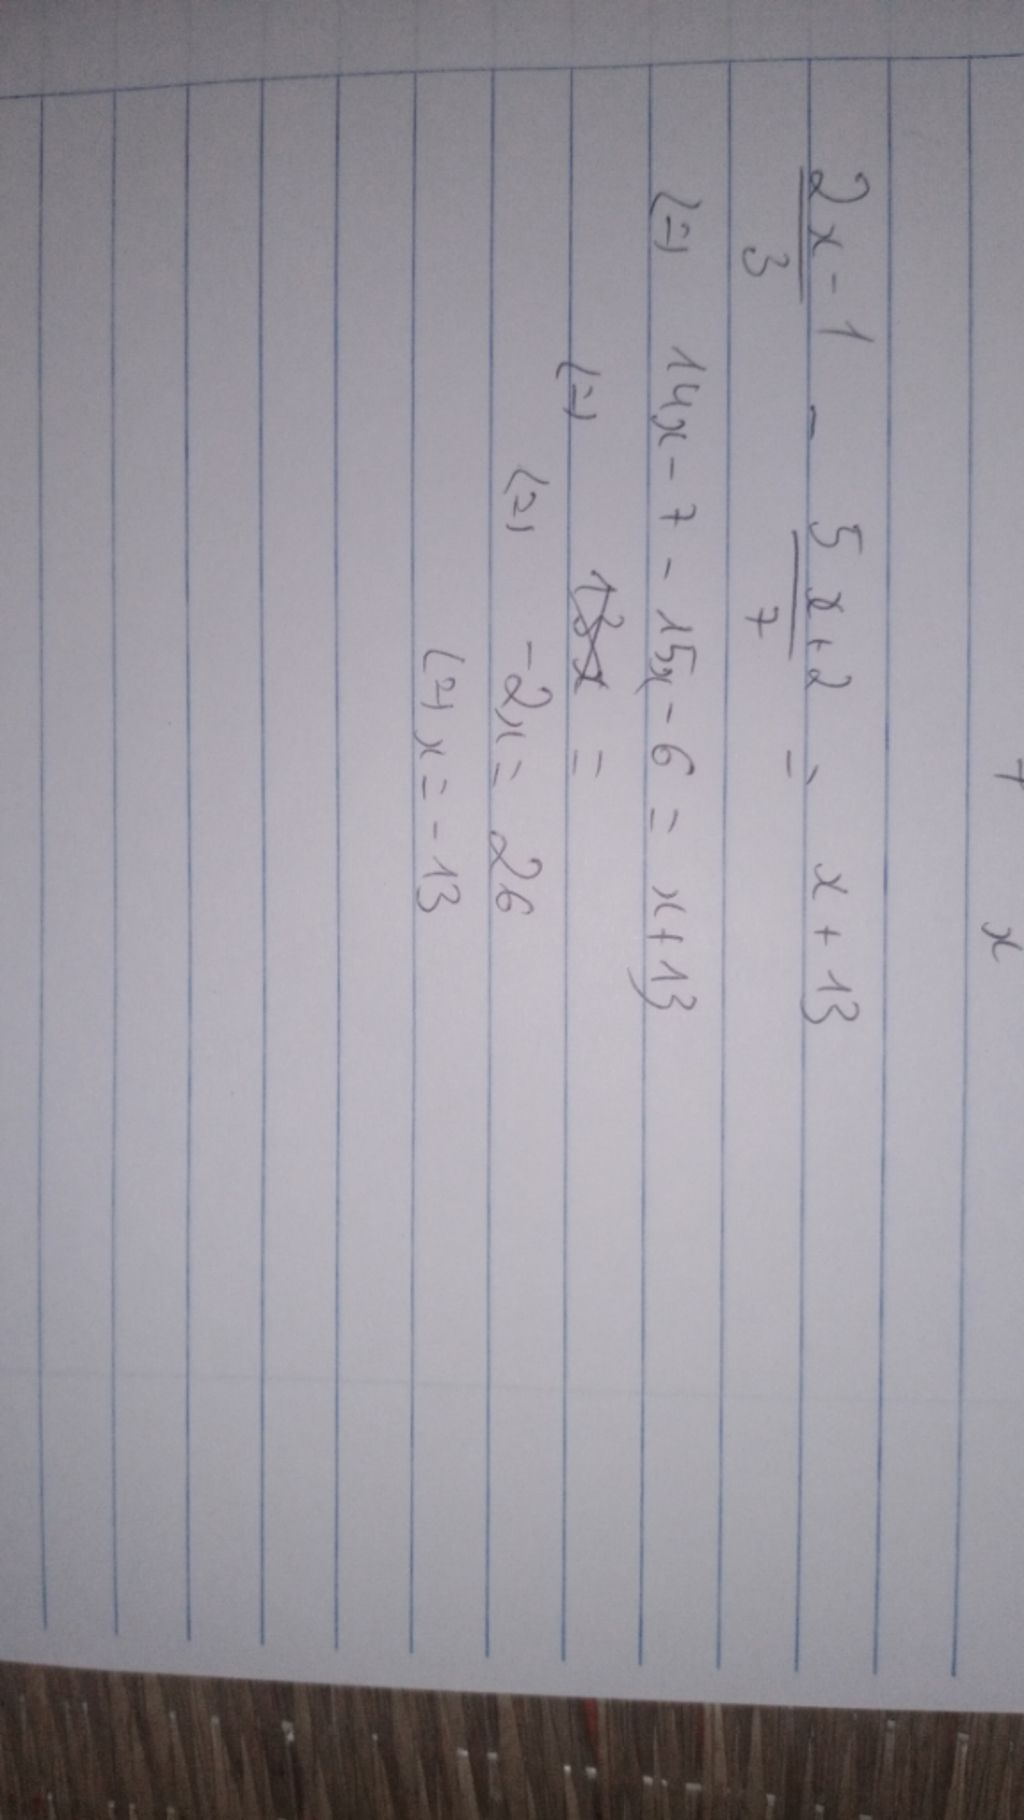 7 x
2x - 1 - 5x+2 = x + 13
3 7
(=) 14x - 7 - 15x - 6 = x+13
(=) =
(=) -2x = 26
(=) x = -13